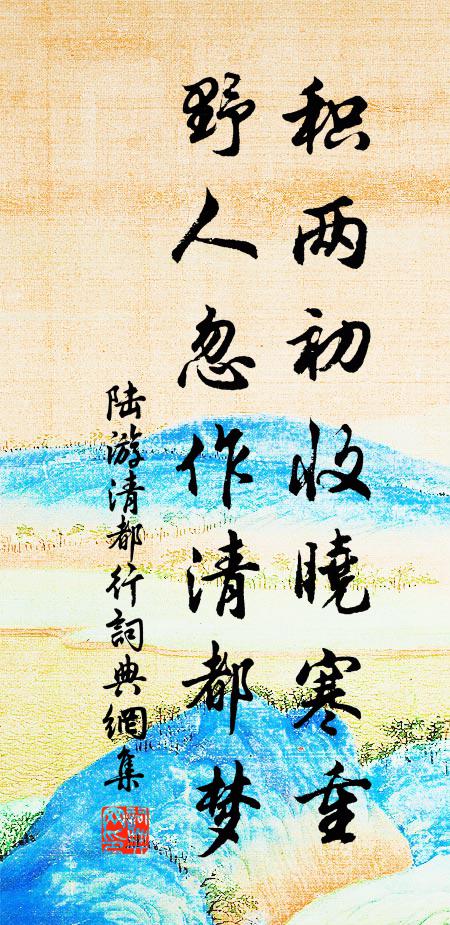 积两初收曉寒重
野人忽作清都梦
陆游清都行詞典網集